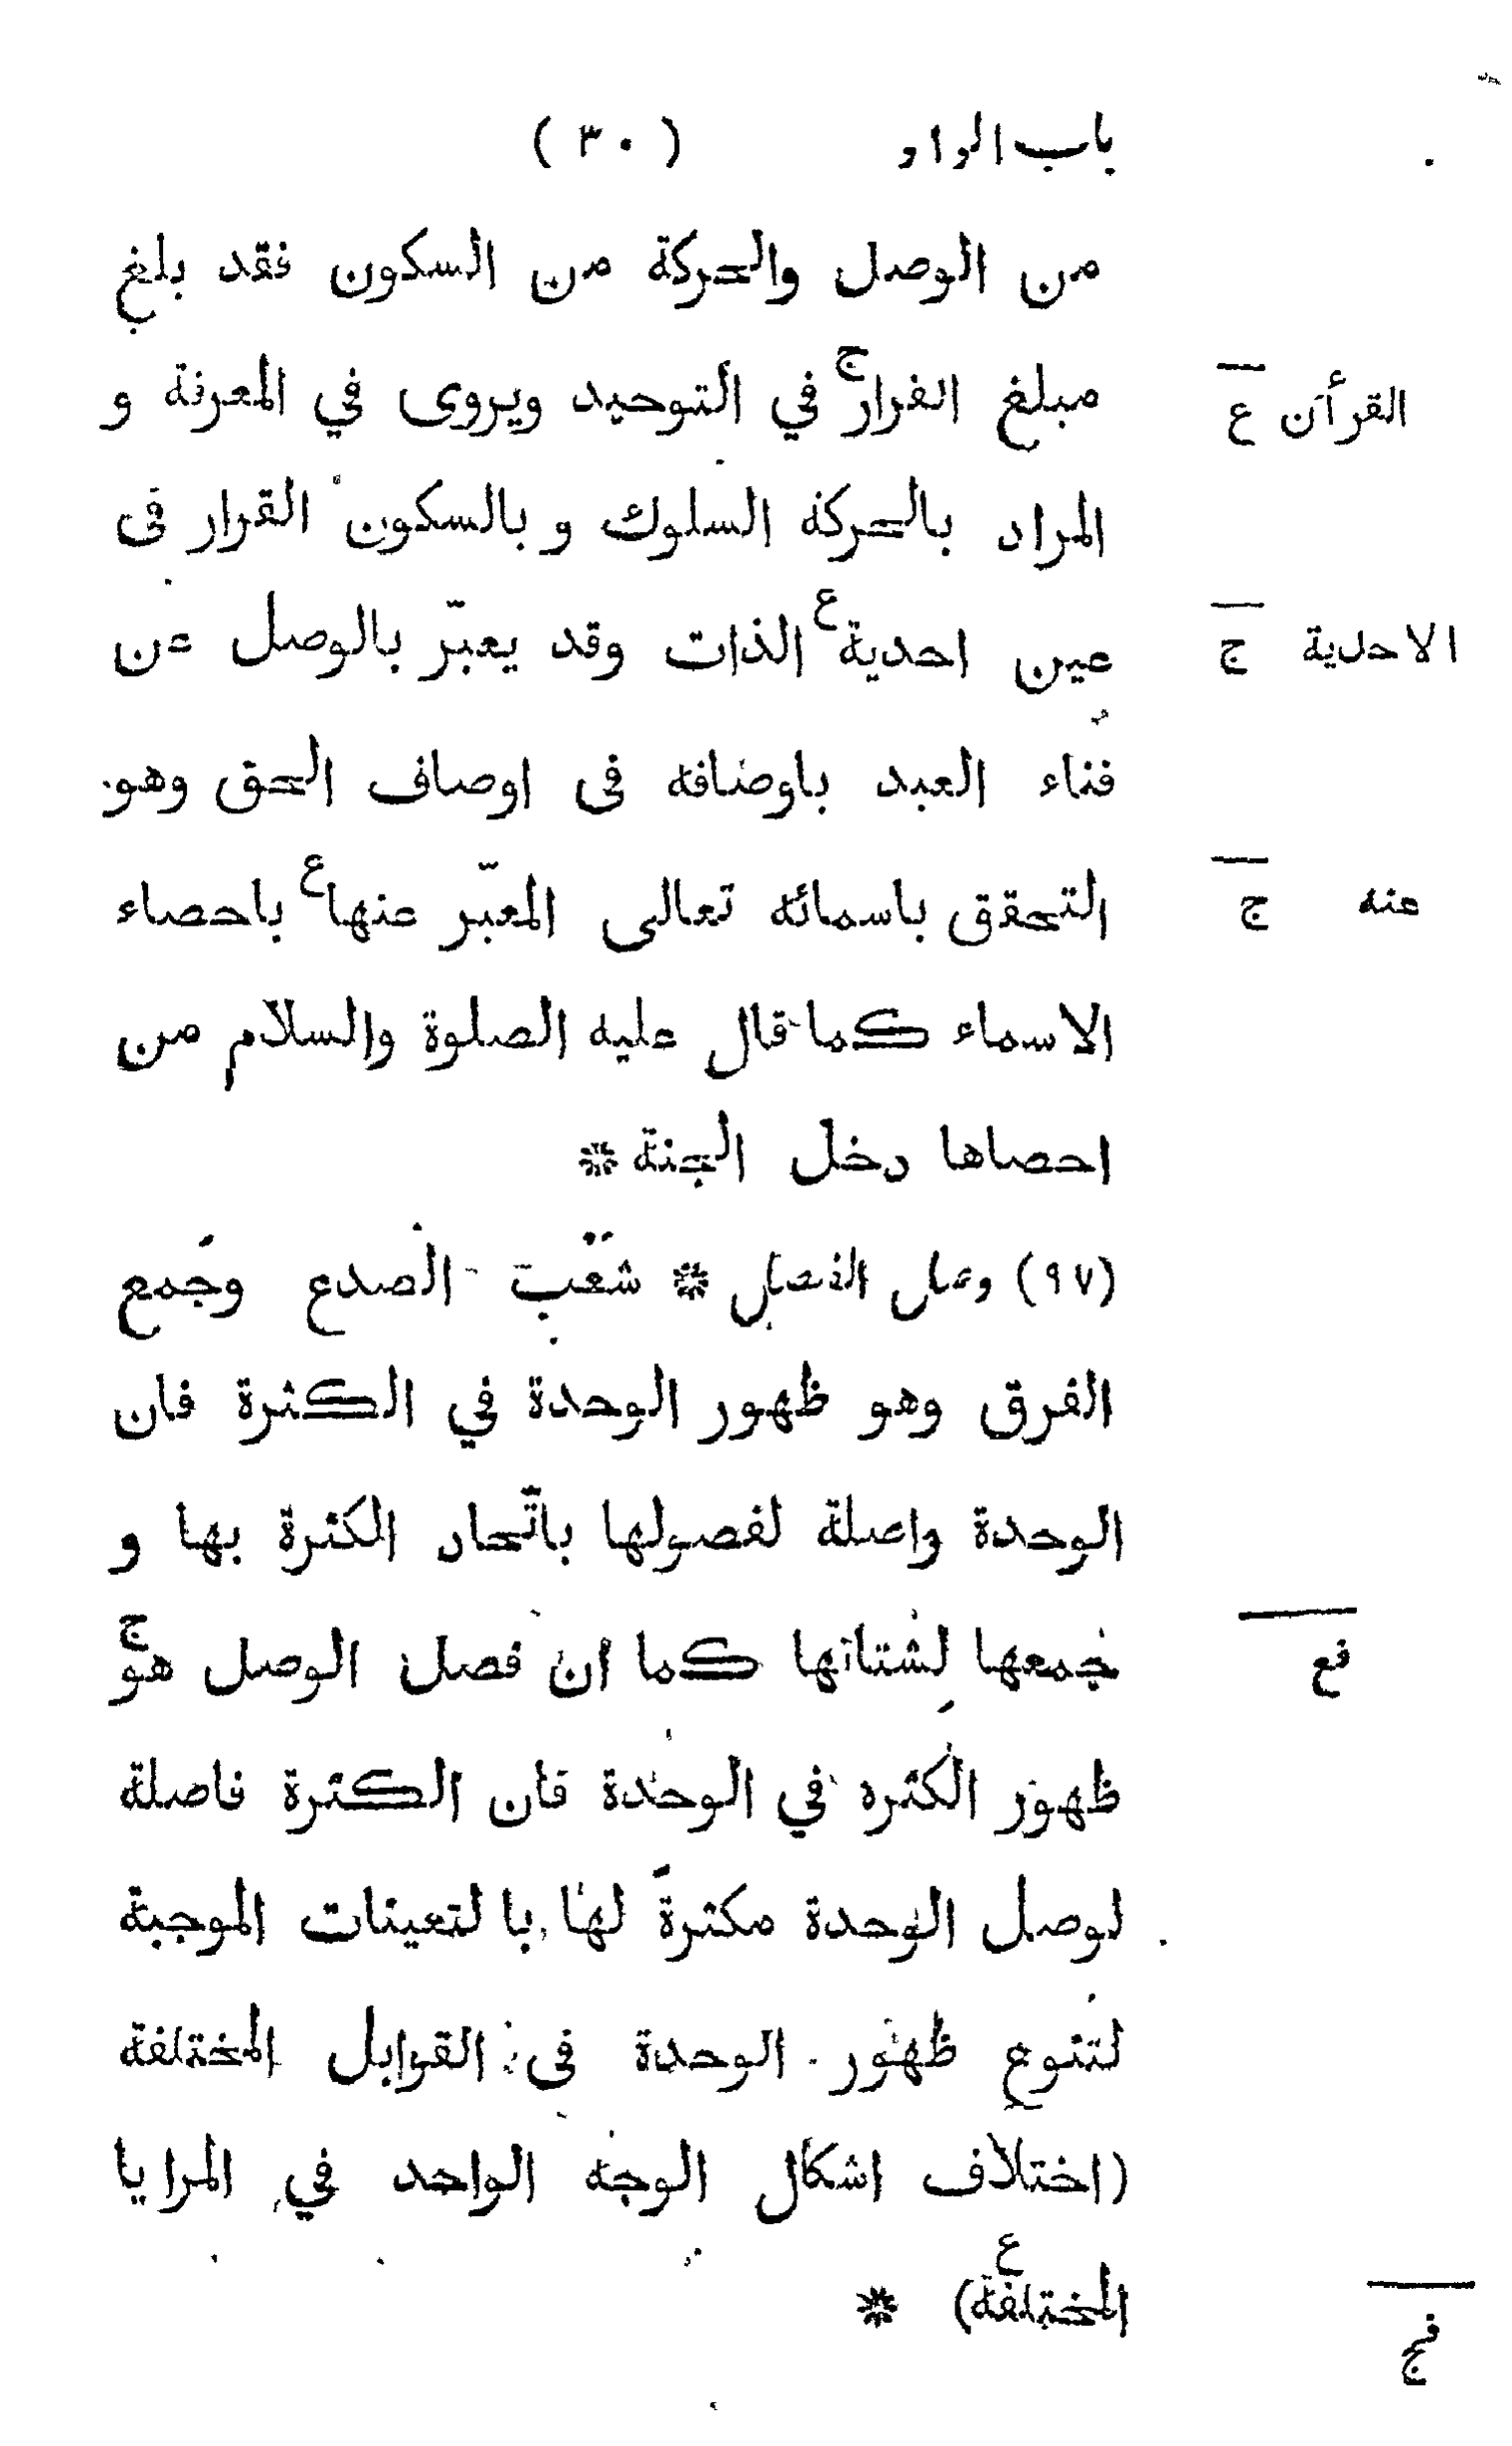 باب الواو (٣٠)
من الوصل والحركة من السكون فقد بلغ
مبلغ القرارج في التوحيد ويروى في المعرفة و
القرأن ع
المراد بالحركة السلوك و بالسكون القرار فى
عين احدية ع الذات وقد يعبّر بالوصل عن
الاحدية ج
فناء العبد باوصافه فى اوصاف الحق وهو
التحقق باسمائه تعالى المعبّر عنها ع باحصاء
عنه ج
الاسماء كما قال عليه الصلوة والسلام من
احصاها دخل الجنة *
(٩٧) وصل الفصل * شعب الصدع وجمع
الفرق وهو ظهور الوحدة في الكثرة فان
الوحدة واصلة لفصولها باتّحاد الكثرة بها و
جمعها لشتاتها كما ان فصل الوصل هو ج
فع
ظهور الكثره في الوحدة فان الكثرة فاصلة
لوصل الوحدة مكثرة لها با لتعينات الموجبة
لتنوع ظهور الوحدة فى القوابل المختلفة
(اختلاف اشكال الوجه الواحد في المرايا
المختلفة) ع *
فج